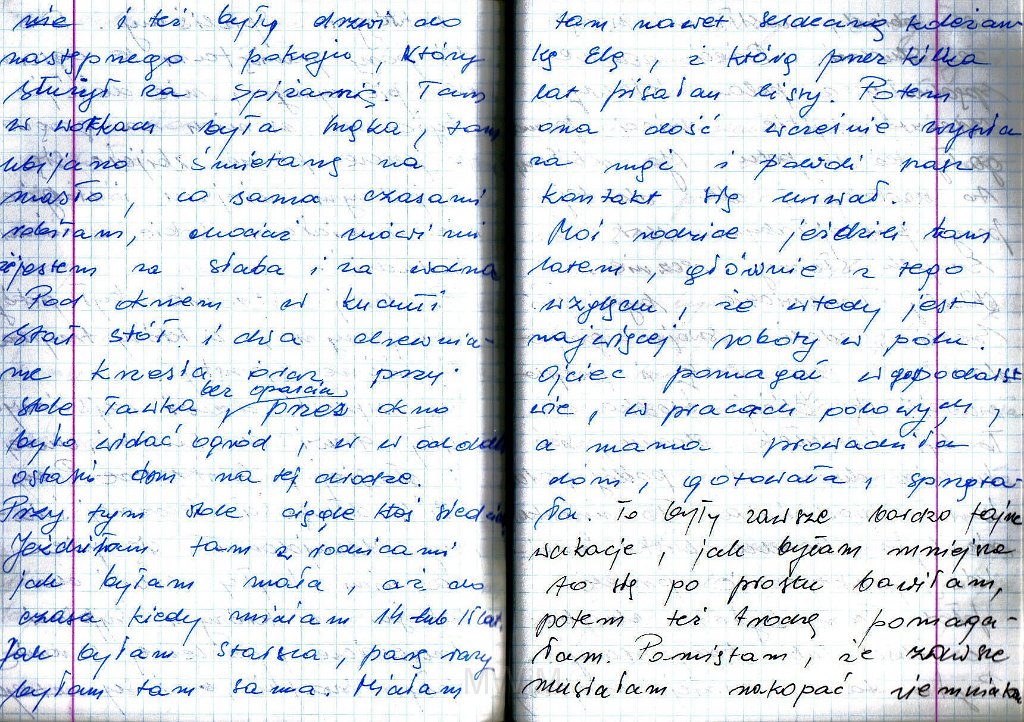 nie i też były drzwi do
następnego pokoju, który
służył za spiżarnię. Tam
w workach była mąka, tam
ubijano śmietanę na
masło, co sama czasami
robiłam, chociaż mówili mi
że jestem za słaba i za wolna
Pod oknem w kuchni
stał stół i dwa drewnia-
ne krzesła oraz przy
stole ławka bez oparcia, przez okno
było widać ogród, w oddali
ostatni dom na tej drodze.
Przy tym stole ciągle ktoś siedział
Jeździłam tam z rodzicami
jak byłam mała, aż do
czasu kiedy miałam 14 lub 15 lat.
Jak byłam starsza, parę razy
byłam tam sama. Miałam
tam nawet serdeczną koleżan-
kę Elę, z którą przez kilka
lat pisałam listy. Potem
ona dość wcześnie wyszła
za mąż i powoli nasz
kontakt się urwał.
Moi rodzice jeździli tam
latem, głównie z tego
względu, że wtedy jest
najwięcej roboty w polu.
Ojciec pomagał w gospodarst
wie, w pracach polowych,
a mama prowadziła
dom, gotowała, sprząta-
ła. To były zawsze bardzo fajne
wakacje, jak byłam mniejsza
to się po prostu bawiłam,
potem też trochę pomaga-
łam. Pamiętam, że zawsze
musiałam nakopać ziemniaków